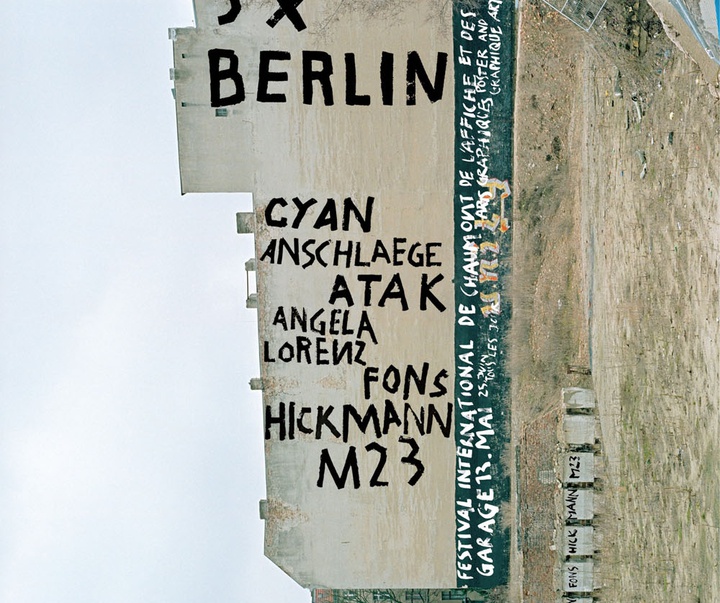 5X
BERLIN
CYAN
ANSCHLAEGE
ATAK
ANGELA
LORENZ
FONS
HICKMANN
M23
FESTIVAL INTERNATIONAL DE CHAUMONT DE L'AFFICHE ET DES
ARTS GRAPHIQUES POSTER AND
GRAPHIQUE ART
GARAGE 13. MAI
25 JUIN
TOUS LES JOURS
FONS HICK MANN M23